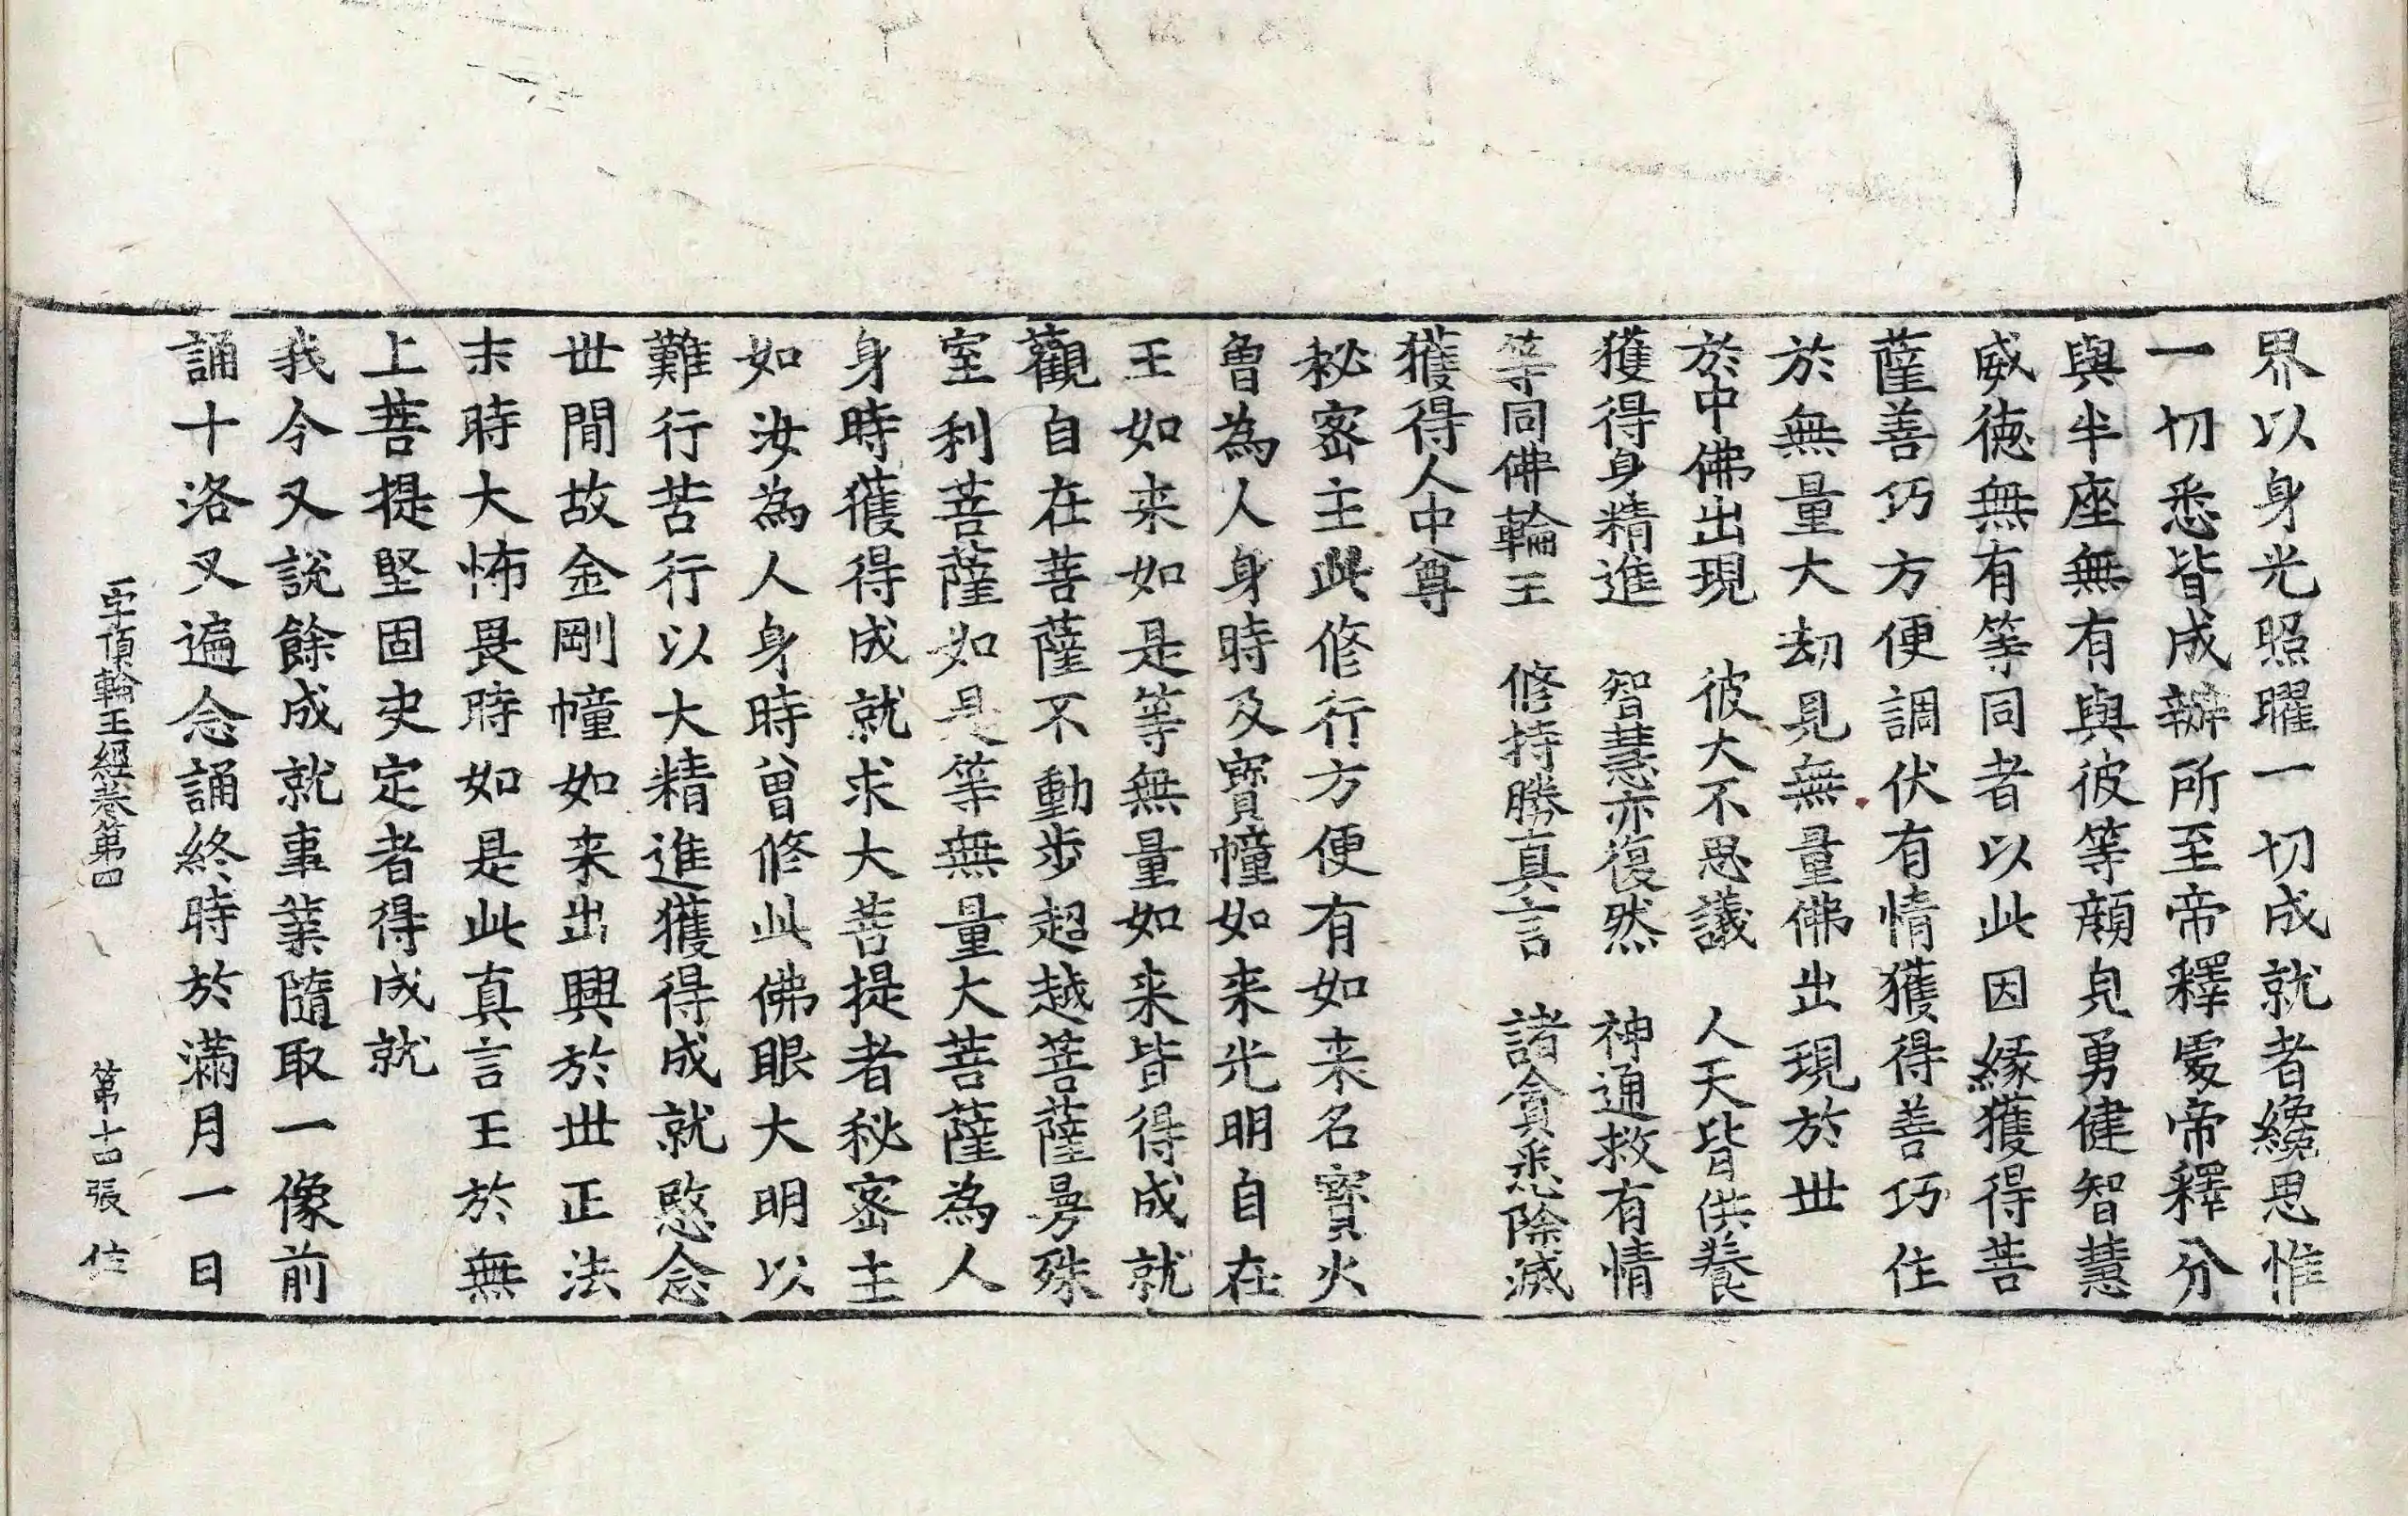 界以身光照曜一切成就者纔思惟
一切悉皆成辦所至帝釋處帝釋分
與半座無有與彼等顔皃勇健智慧
威徳無有等同者以此因緣獲得菩
薩善巧方便調伏有情獲得善巧住
於無量大劫見無量佛出現於世
於中佛出現　彼大不思議　人天皆供養
獲得身精進　智慧亦復然　神通救有情
等同佛輪王　修持勝真言　諸貪悉除滅
獲得人中尊
秘密主此修行方便有如来名寶火
曾為人身時及寶幢如来光明自在
王如来如是等無量如来皆得成就
觀自在菩薩不動步超越菩薩曼殊
室利菩薩如是等無量大菩薩為人
身時獲得成就求大菩提者秘密主
如汝為人身時曾修此佛眼大明以
難行苦行以大精進獲得成就愍念
世閒故金剛幢如来出興於世正法
末時大怖畏時如是此真言王於無
上菩提堅固決定者得成就
我今又說餘成就事業隨取一像前
誦十洛叉遍念誦終時於滿月一日
一字頂輪王經卷第四　第十四張　住